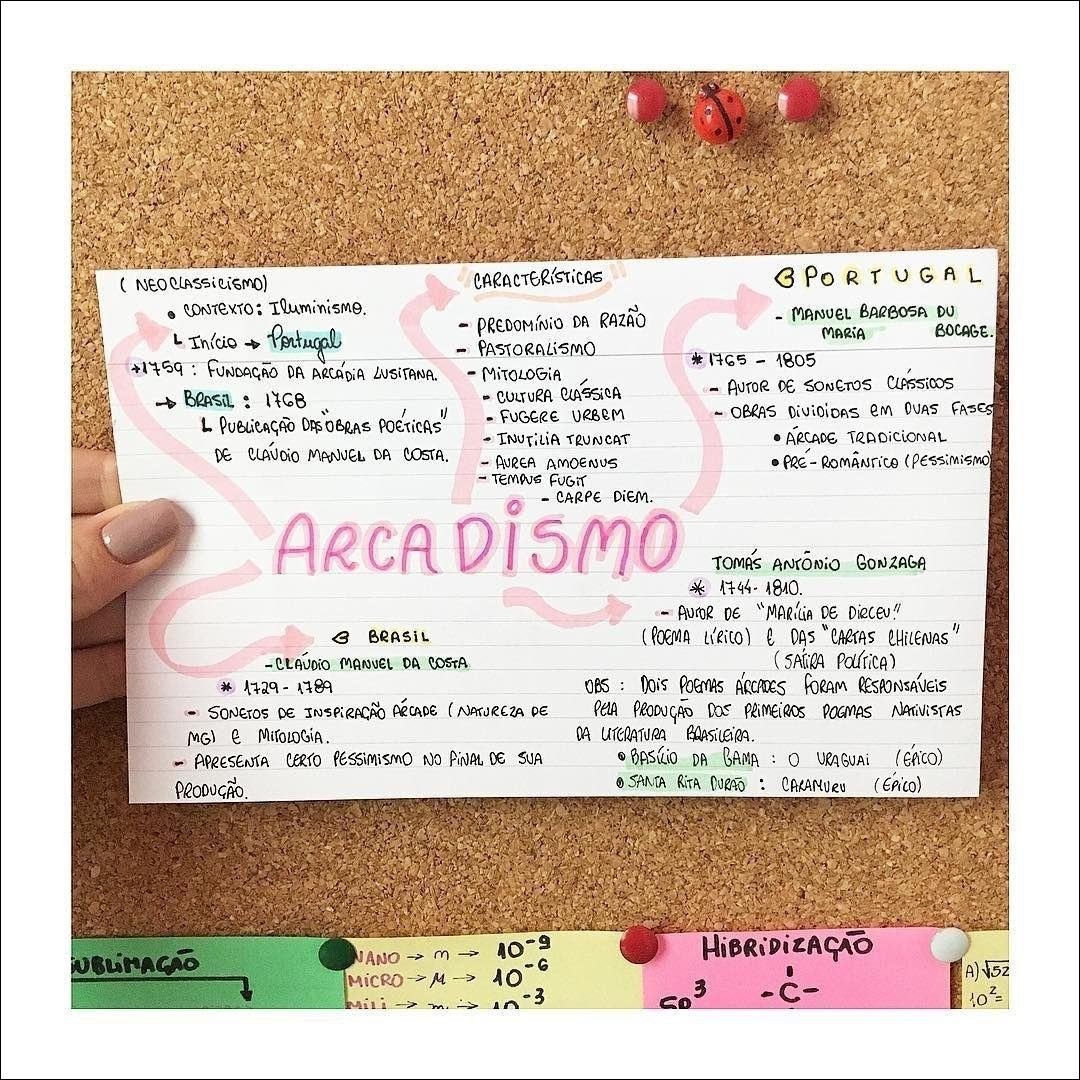 (NEOCLASSICISMO)
• CONTEXTO: ILUMINISMO.
↳ INÍCIO → Portugal
*1759: FUNDAÇÃO DA ARCÁDIA LUSITANA.
→ BRASIL: 1768
↳ PUBLICAÇÃO DAS "OBRAS POÉTICAS"
DE CLÁUDIO MANUEL DA COSTA.
CARACTERÍSTICAS
- PREDOMÍNIO DA RAZÃO
- PASTORALISMO
- MITOLOGIA
- CULTURA CLÁSSICA
- FUGERE URBEM
- INUTILIA TRUNCAT
- AUREA AMOENUS
- TEMPUS FUGIT
- CARPE DIEM.
PORTUGAL
- MANUEL BARBOSA DU
MARIA BOCAGE.
* 1765 - 1805
- AUTOR DE SONETOS CLÁSSICOS
- OBRAS DIVIDIDAS EM DUAS FASES
• ÁRCADE TRADICIONAL
• PRÉ-ROMÂNTICO (PESSIMISMO)
ARCADISMO
BRASIL
- CLÁUDIO MANUEL DA COSTA
* 1729 - 1789
- SONETOS DE INSPIRAÇÃO ÁRCADE (NATUREZA DE
MG) E MITOLOGIA.
- APRESENTA CERTO PESSIMISMO NO FINAL DE SUA
PRODUÇÃO.
TOMÁS ANTÔNIO GONZAGA
* 1744-1810.
- AUTOR DE "MARÍLIA DE DIRCEU"
(POEMA LÍRICO) E DAS "CARTAS CHILENAS"
(SÁTIRA POLÍTICA)
OBS: DOIS POEMAS ÁRCADES FORAM RESPONSÁVEIS
PELA PRODUÇÃO DOS PRIMEIROS POEMAS NATIVISTAS
DA LITERATURA BRASILEIRA.
• BASÍLIO DA GAMA: O URAGUAI (ÉPICO)
• SANTA RITA DURÃO: CARAMURU (ÉPICO)
SUBLIMAÇÃO
NANO → n → 10⁻⁹
MICRO → μ → 10⁻⁶
MILI → m → 10⁻³
HIBRIDIZAÇÃO
SP³
-C-
A) √52
10² =